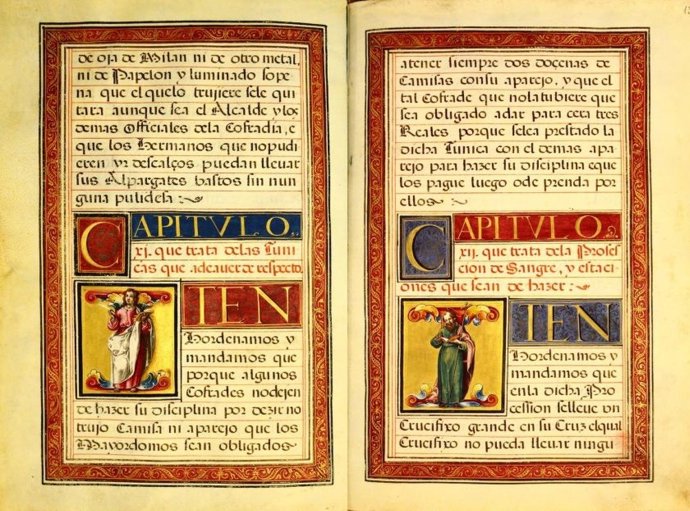 de oja de Milan ni de otro metal,
ni de Papelon y luminado sope
na que el quelo trujiere sele qui
tara aunque sea el Alcalde y los
demas Officiales dela Cofradia, e
que los Hermanos que nopudi
eren yr descalços puedan lleuar
sus Alpargates bastos sin nin
guna pulideza:
CAPITVLO.
xj. que trata delas Tuni
cas que adeauer de respecto.
ITEN
Hordenamos y
mandamos que
porque algunos
Cofrades nodejen
de hazer su disciplina por dezir no
trujo Camisa ni aparejo que los
Mayordomos sean obligados
atener siempre dos doçenas de
Camisas consu aparejo, y que el
tal Cofrade que nolatubiere que
sea obligado adar para cera tres
Reales porque selea prestado la
dicha Tunica con el demas apa
rejo para hazer su disciplina eque
los pague luego ode prenda por
ellos:
CAPITVLO.
xij. que trata dela Proses
cion de Sangre, y estaci
ones que sean de hazer:
ITEN
Hordenamos y
mandamos que
enla dicha Pro
cession selleue vn
Crucifixo grande en su Cruz elqual
Crucifixo no pueda lleuar ningu